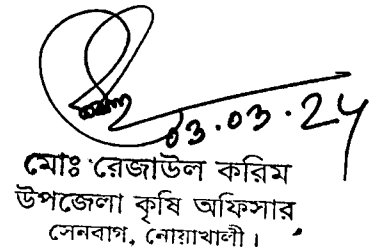 03.03.24
মোঃ রেজাউল করিম
উপজেলা কৃষি অফিসার
সেনবাগ, নোয়াখালী।